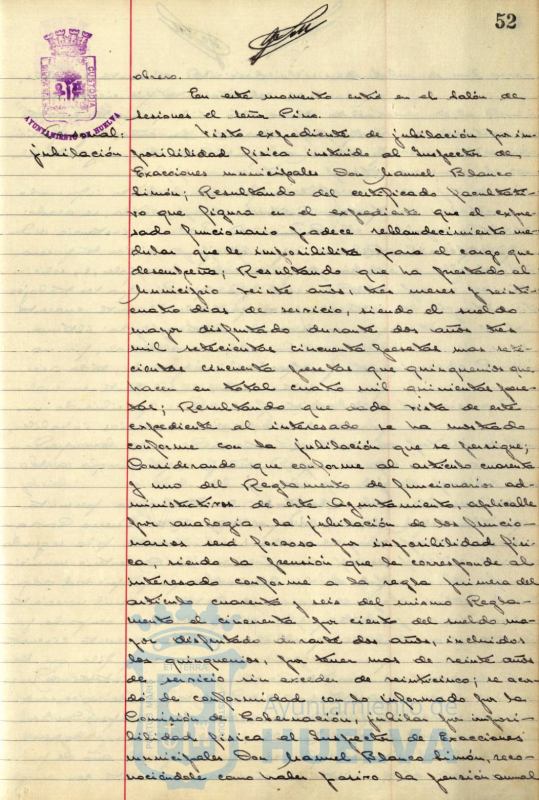 52
AYUNTAMIENTO DE HUELVA
obrero.
En este momento entra en el salón de
sesiones el señor Pino.
Visto expediente de jubilación por im-
jubilación
posibilidad física instruido al Inspector de
Exacciones municipales Don Manuel Blanco
Limón; Resultando del certificado facultati-
vo que figura en el expediente que el expre-
sado funcionario padece reblandecimiento me-
dular que le imposibilita para el cargo que
desempeña; Resultando que ha prestado al
Municipio veinte años, tres meses y veinti-
cuatro dias de servicio, siendo el sueldo
mayor disfrutado durante dos años tres
mil setecientas cincuenta pesetas mas sete-
cientas cincuenta pesetas que quinquenios que
hacen en total cuatro mil quinientas pese-
tas; Resultando que dada vista de este
expediente al interesado se ha mostrado
conforme con la jubilación que se persigue;
Considerando que conforme al artículo cuarenta
y uno del Reglamento de funcionarios ad-
ministrativos de este Ayuntamiento, aplicable
por analogia, la jubilación de los funcio-
narios será forzosa por imposibilidad físi-
ca, siendo la pensión que le corresponde al
interesado conforme a la regla primera del
artículo cuarenta y seis del mismo Regla-
mento el cincuenta por ciento del sueldo ma-
yor disfrutado durante dos años, incluidos
los quinquenios, por tener mas de veinte años
de servicio sin exceder de veinticinco; se acor-
dó de conformidad con lo informado por la
Comisión de Gobernación, jubilar por imposi-
bilidad física al Inspector de Exacciones
municipales Don Manuel Blanco Limón, reco-
nociéndole como haber pasivo la pensión anual
Ayuntamiento de
HUELVA